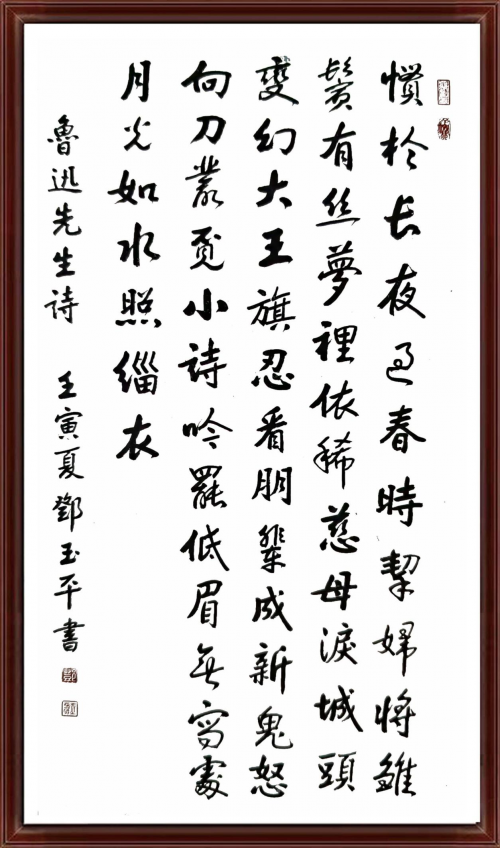 慣於长夜过春時挈婦将雛
鬢有丝夢裡依稀慈母淚城頭
變幻大王旗忍看朋輩成新鬼怒
向刀叢覓小詩吟罷低眉無寫處
月光如水照緇衣
魯迅先生詩 壬寅夏鄧玉平書